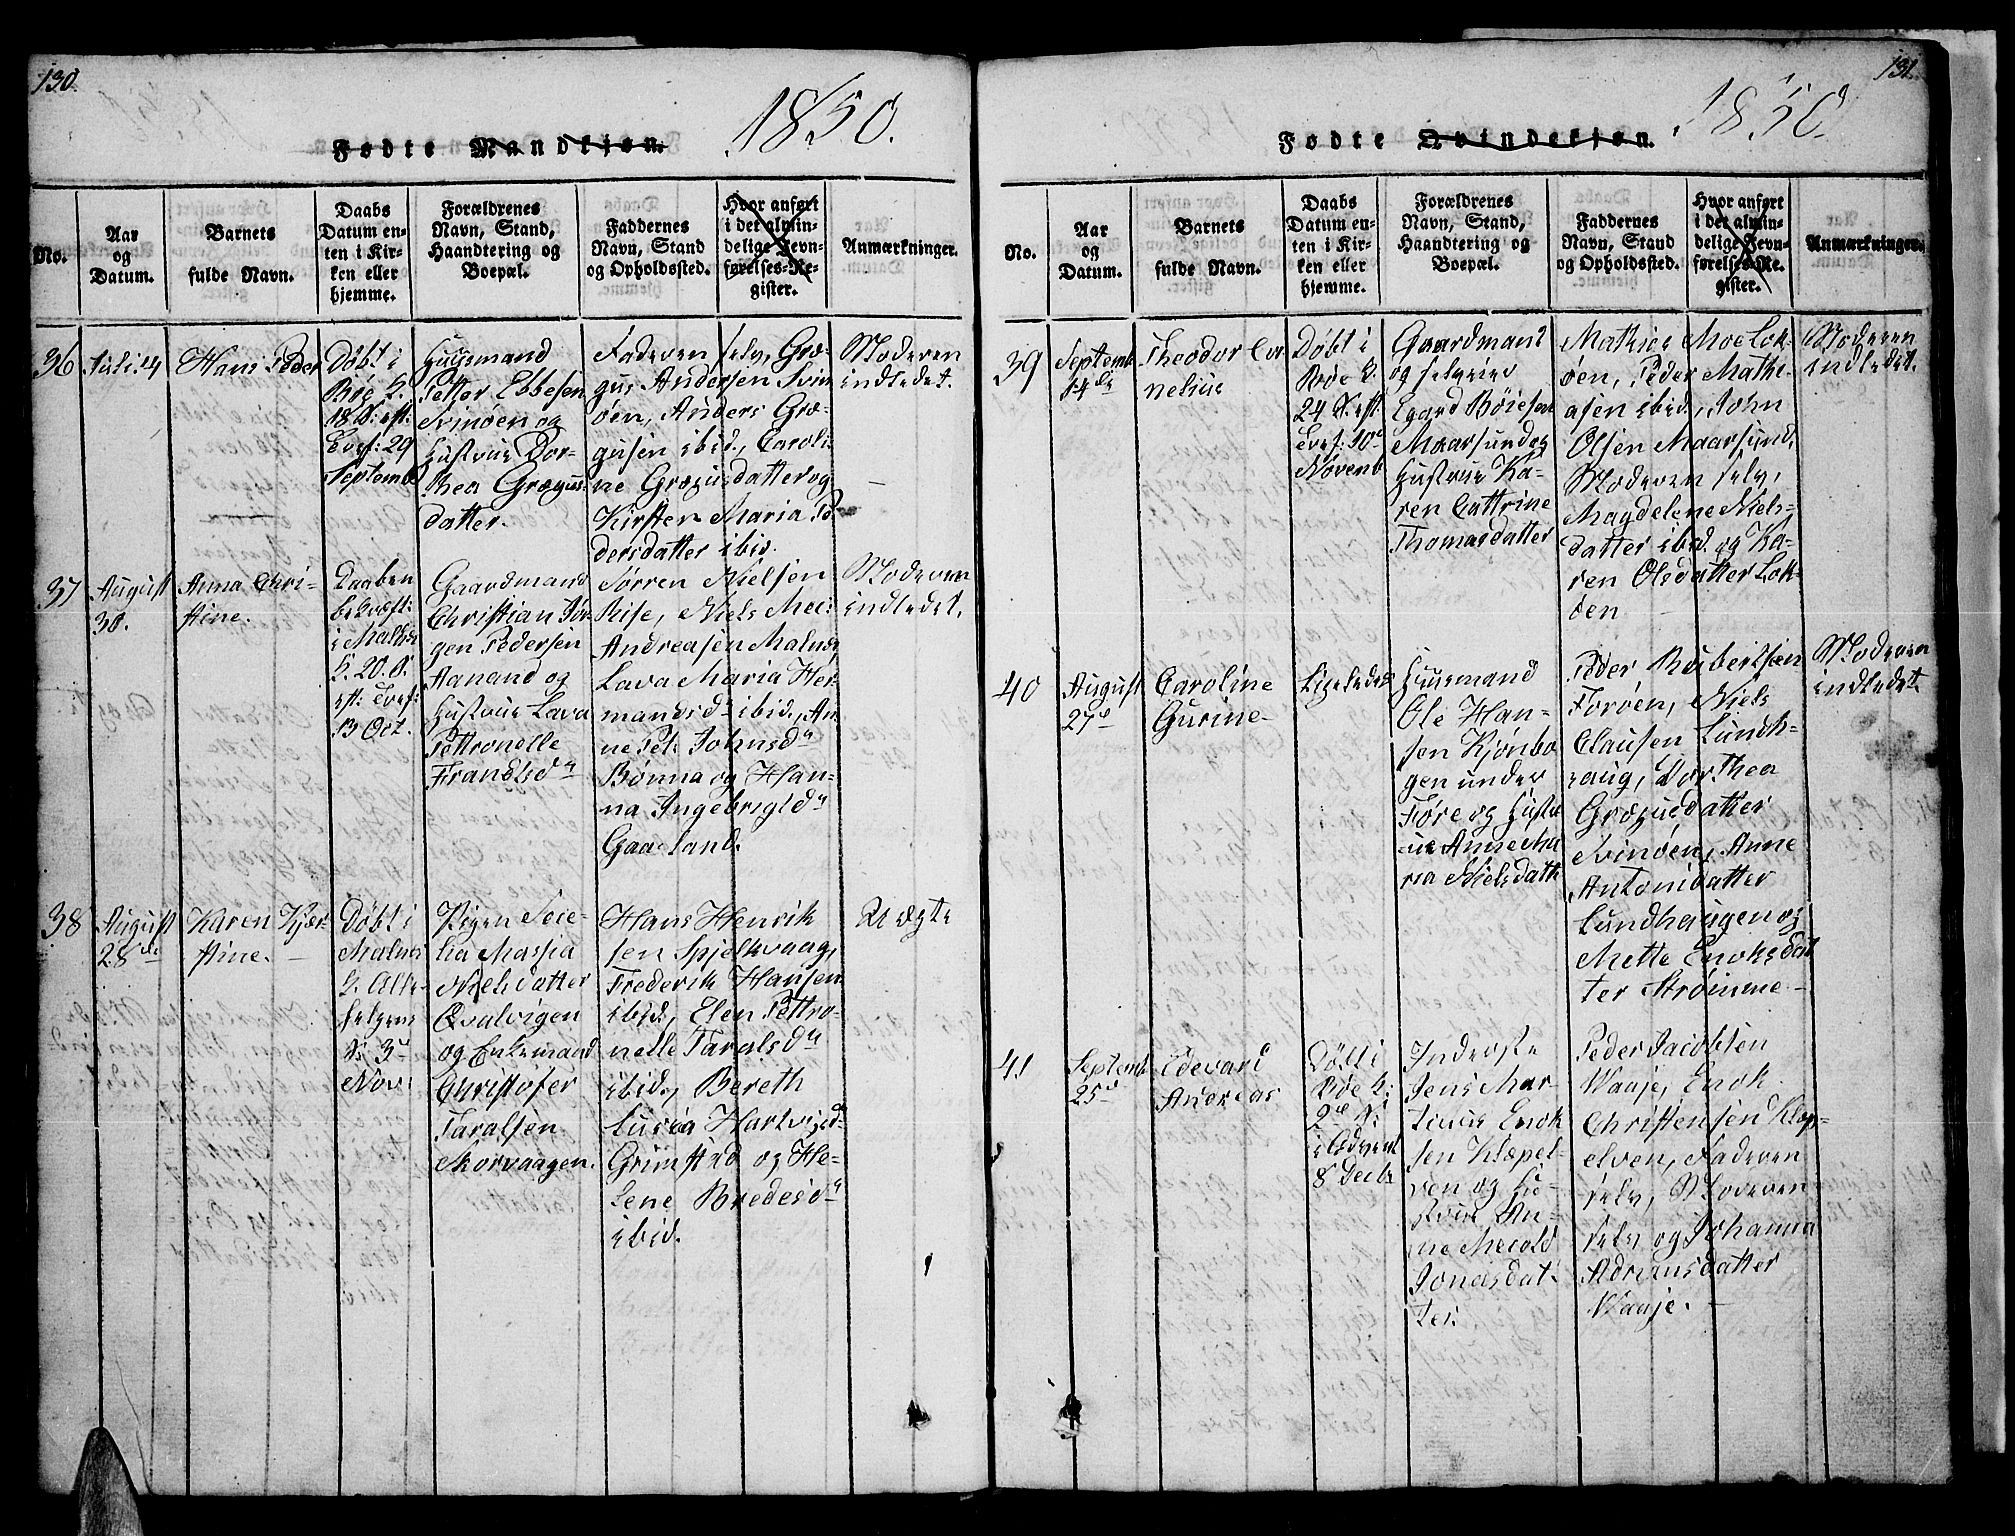 130.
1850.
Fødte Mandkjøn.
No.
Aar
og
Datum.
Barnets
fulde Navn.
Daabs
Datum en-
ten i Kir-
ken eller
hjemme.
Forældrenes
Navn, Stand,
Haandtering og
Boepæl.
Faddernes
Navn, Stand
og Opholdssted.
Hvor anført
i det almin-
delige Jevn-
førelses-Re-
gister.
Anmærkninger.
36
Juli 14
Hans Peder
Døbt i
Bøe K.
18 S. eft:
Evef: 29
Septemb
Huusmand
Petter Ebbesen
Svinøen og
Hustrue Dor-
thea Græguus-
datter.
Faderen selv, Græ-
gus Andersen Svin
øen, Anders Græ-
gusen ibid., Caroli-
ne Græguisdatter og
Kirsten Maria Pe
dersdatter ibid.
Moderen
indledet.
37
August
30.
Anna Chri-
stine.
Daaben
bekræft:
i Malnes
K. 20. S.
eft: Evef:
13 Oct.
Gaardmand
Christian Jør-
gen Pedersen
Aanand og
Hustrue Lava
Pettronelle
Frantsd
Sørren Nielsen
Rise, Niels Mei:
Andreasen Malnes
Lava Maria Her-
mandsd ibid., An-
ne Pet: Johnsd
Bønna og Han-
na Ingebrigtd
Gaasland.
Moderen
indledet.
38
August
28de
Karen Kjær-
stine.
Døbt i
Malnes
K. Alle-
helgens
D. 3d
Nov:
Pigen Seie-
lia Massia
Nielsdatter
Qvalvigen
og Enkemand
Christofer
Taralsen
Skorvaagen.
Hans Henrik
sen Spjelkvaag,
Frederik Hansen
ibid., Elen Pettro-
nelle Taralsd
ibid., Bereth
Lusia Hartvigd
Grimstad og He-
lene Bredesd
ibid.
Uægte
131.
1850.
Fødte Qvindekjøn.
No.
Aar
og
Datum.
Barnets
fulde Navn.
Daabs
Datum en-
ten i Kir-
ken eller
hjemme.
Forældrenes
Navn, Stand,
Haandtering og
Boepæl.
Faddernes
Navn, Stand
og Opholdssted.
Hvor anført
i det almin-
delige Jevn-
førelses-Re-
gister.
Anmærkninger.
39
Septemb
14de
Theodor Cor
nelius
Døbt i
Bøe K.
24 S. eft:
Evef: 10de
Novemb
Gaardmand
og selveier
Egard Bøiesen
Maarsund og
Hustrue Ka-
ren Cattrine
Thomasdatter
Mathies Moe Lok-
øen, Peder Mathi-
asen ibid., John
Olsen Maarsund,
Moderen selv,
Magdelene Niels-
datter ibid. og Ka-
ren Olsdatter Lok-
øen
Moderen
indledet.
40
August
27d
Caroline
Gurine
Ligeledes
Huusmand
Ole Han-
sen Kjønbo
gen under
Føre og Hustr
ue Anne Ma
ria Nielsdatt
Peder Robertsen
Forøen, Niels
Clausen Lundh-
aug, Dorthea
Græguisdatter
Svinøen, Anne
Antonidatter
Lundhaugen og
Mette Enoksdat
ter Strømme
Moderen
indledet.
41
Septemb
25d
Edevard
Andreas
Døbt i
Bøe K:
2de S.
i Advent
8 Decbr
Inderste
Jens Mar-
tinus Enok
sen Klæpel-
ven og Hu-
strue An-
ne Merold
Jonasdat-
ter.
Peder Jacobsen
Waaje, Enok
Christensen Klep-
elven, Faderen
selv, Moderen
selv og Johanna
Adriansdatter
Waaje.